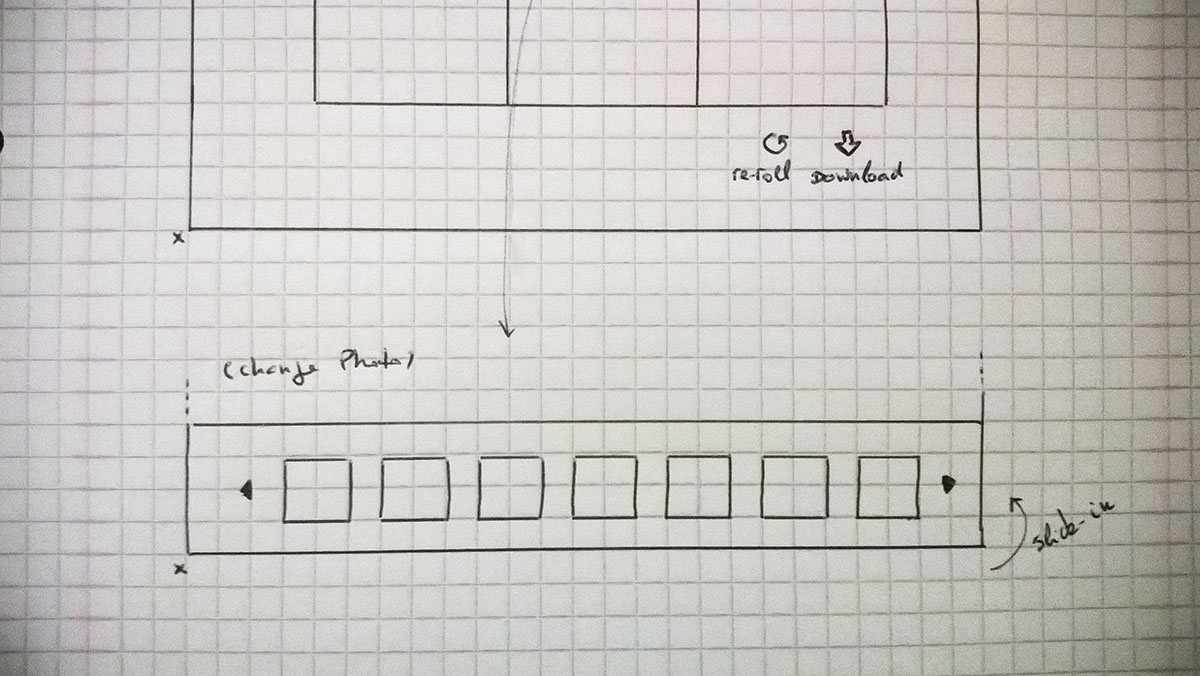 re-roll Download
(change Photo)
slide-in